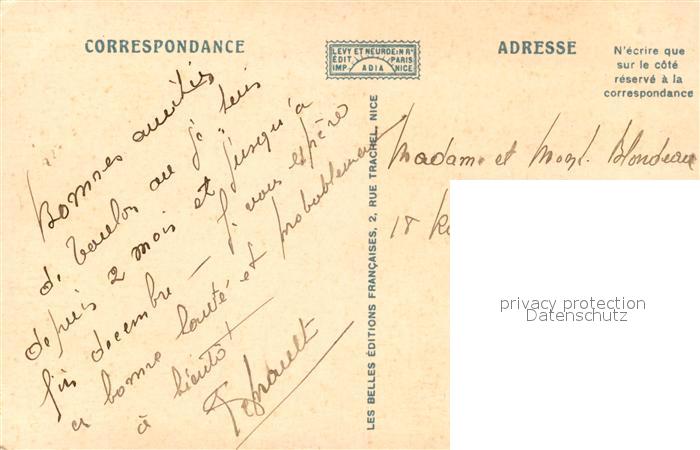 CORRESPONDANCE
LEVY ET NEURDEIN Rs
EDIT. PARIS
IMP. ADIA NICE
ADRESSE
N'écrire que
sur le côté
réservé à la
correspondance
Bonnes amitiés
de Toulon où je suis
depuis 2 mois et jusqu'à
fin decembre - j vous espère
en bonne santé et probablement
à bientôt
LES BELLES ÉDITIONS FRANÇAISES, 2, RUE TRACHEL, NICE
Madame et Mons. Blondeau
18
privacy protection
Datenschutz